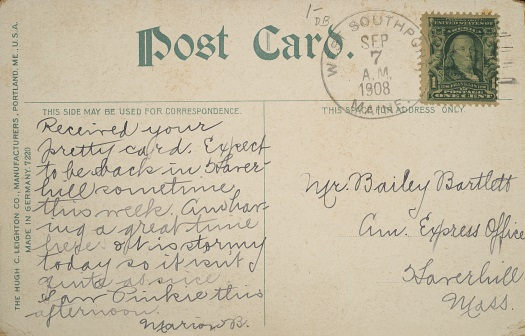 1-
DB
Post Card.
WEST SOUTHPORT
SEP
7
A.M.
1908
MAINE.
UNITED STATES OF AMERICA
POSTAGE
ONE CENT
THE HUGH C. LEIGHTON CO., MANUFACTURERS, PORTLAND, ME., U.S.A.
MADE IN GERMANY. 7220
THIS SIDE MAY BE USED FOR CORRESPONDENCE.
THIS SIDE FOR ADDRESS ONLY
Received your
pretty card. Expect
to be back in Haver-
hill sometime
this week. Am hav-
ing a great time
here. It is stormy
today so it isn't
quite as nice
Saw Pinkie this
afternoon.
Marion B.
Mr. Bailey Bartlett
Am. Express Office
Haverhill
Mass.